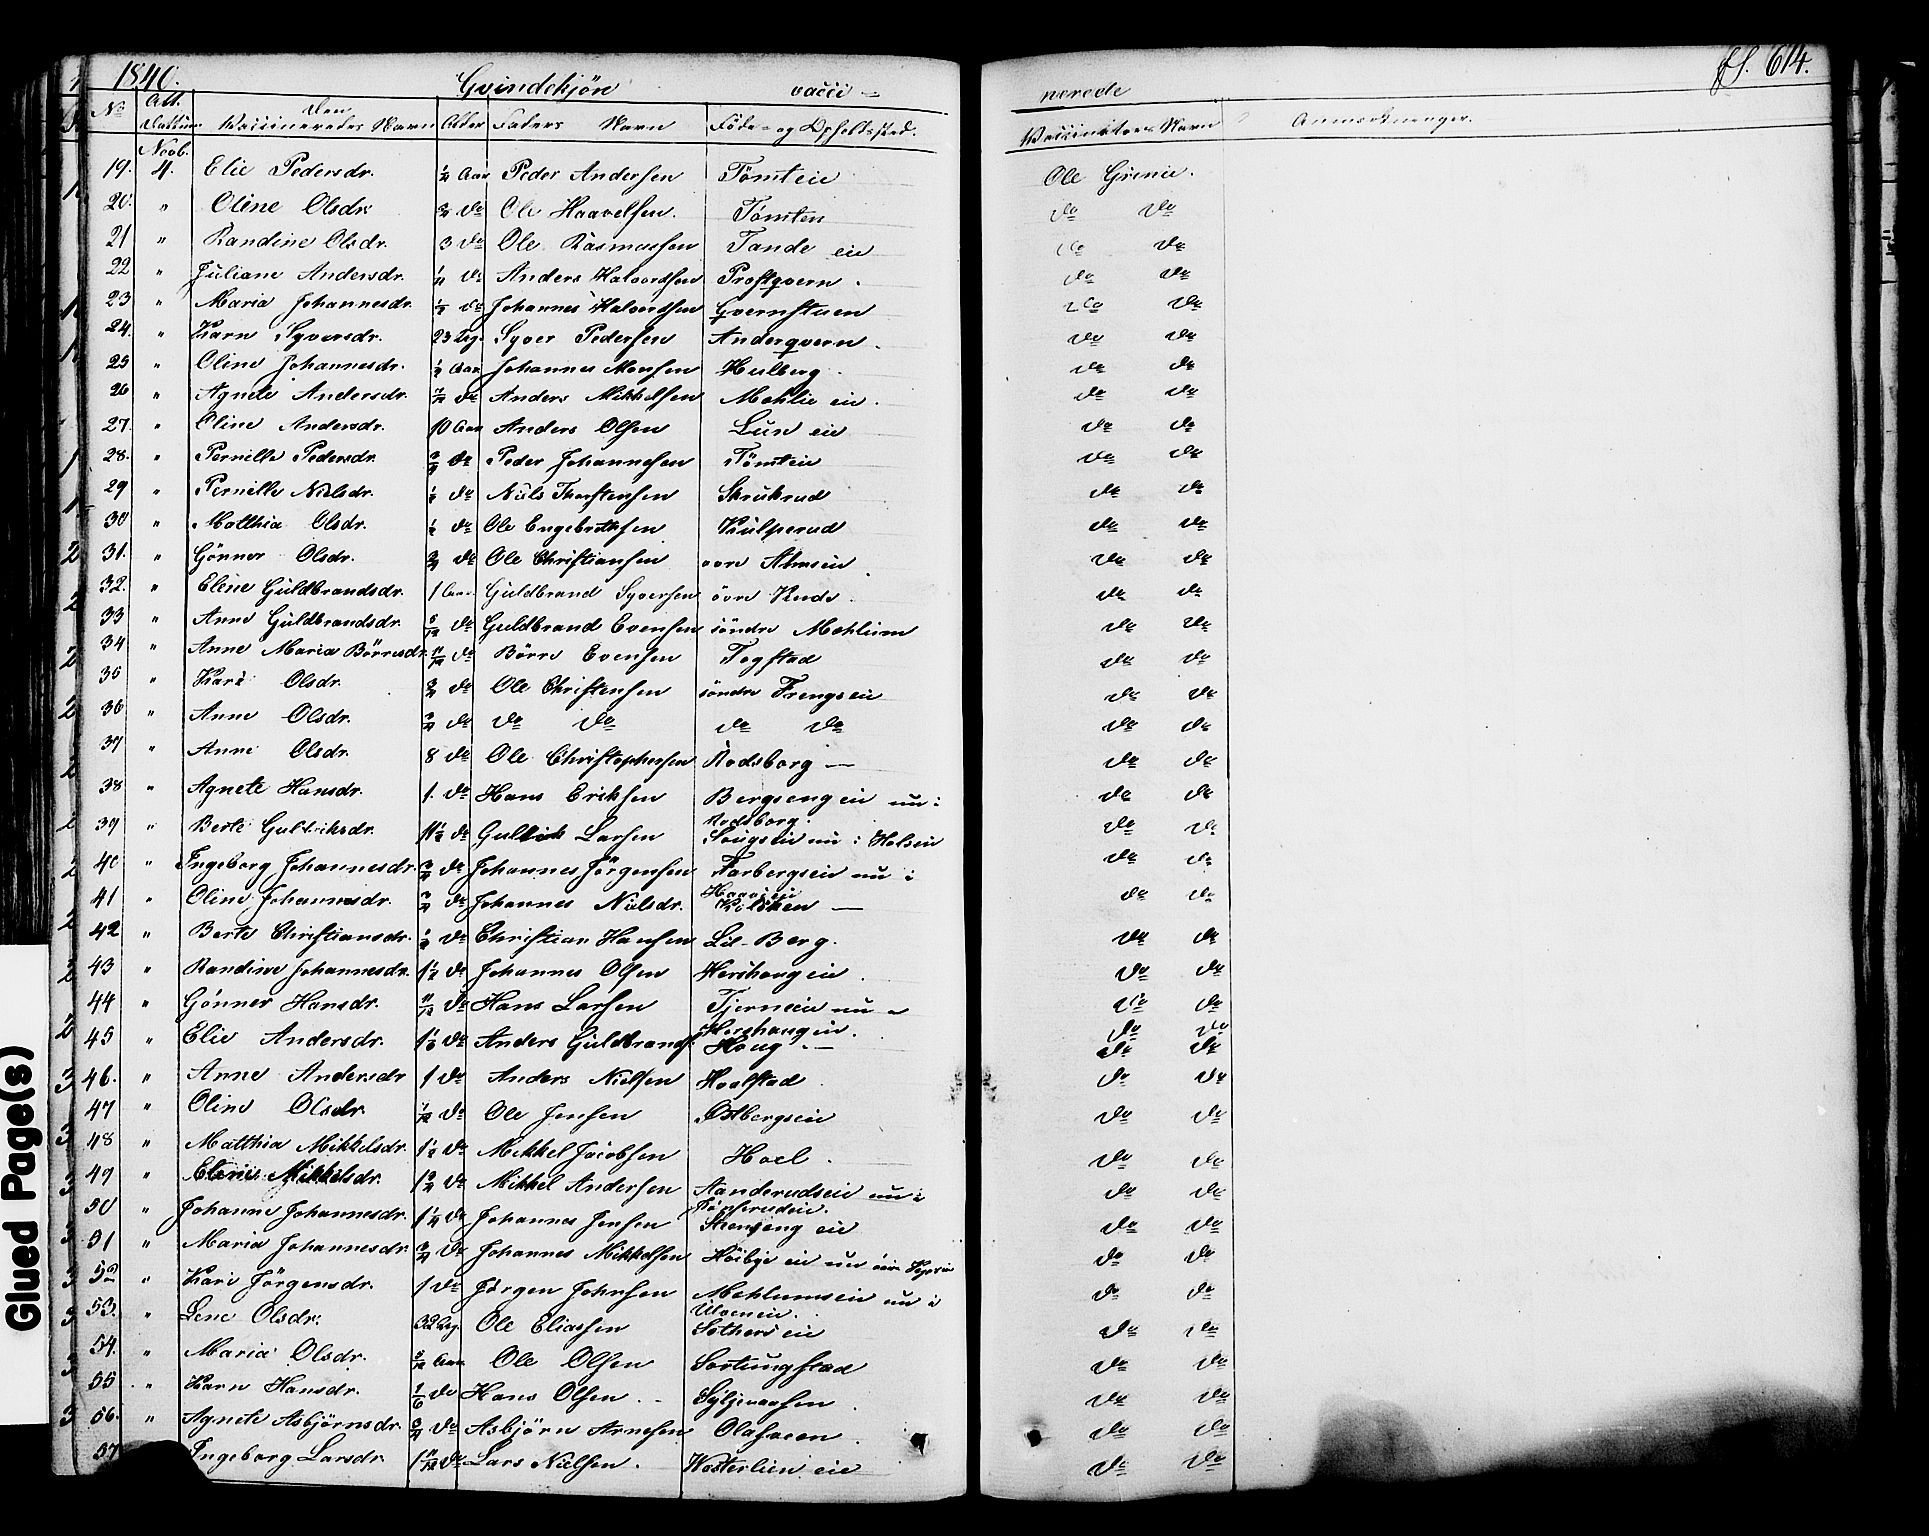 1840. Qvindekjön vacci- nerede fol. 614.
No Att. Datum Den Vaccineredes Navn Alder Faders Navn Föde- og Opholdssted. Vaccinateurs Navn Anmærkninger.
Novb.
19. 4. Elie Pedersdr. 1/2 Aar Peder Andersen Tömteie Ole Grenie.
20. " Oline Olsdr. 3/4 do Ole Haavelsen. Tomten do do
21 " Randine Olsdr. 3 do Ole Rasmussen Tande eie do do
22 " Juliane Andersdr. do Anders Halvordsen Prostqvern. do do
23 " Maria Johannesdr. 1/2 do Johannes Halvordsen Qvernstuen do do
24. " Karn Syversdr. 23 Ug. Syver Pedersen Anderqvern. do do
25 " Oline Johannesdr. 1/2 Aar Johannes Monsen Hulberg. do do
26 " Agnete Andersdr. do Anders Mikkelsen Mohlie eie. do do
27. " Oline Andersdr. 10 Aar Anders Olsen Lun eie do do
28. " Pernille Pedersdr. 3/4 do Peder Johannesen Tömteie do do
29 " Pernille Nielsdr. do Niels Thorstensen Skrukrud do do
30 " Matthia Olsdr. do Ole Engebrethsen Kulperud do do
31. " Gönner Olsdr. 3/4 do Ole Christiansen övre Almseie do do
32. " Elene Guldbrandsdr. 1 Aar Guldbrand Syversen övre Kinds. do do
33 " Anne Guldbrandsdr. 5/12 do Guldbrand Evensen söndre Mohlum do do
34 " Anne Maria Börresdr. 11/12 do Börre Evensen Fogstad do do
35 " Kari Olsdr. 3/4 do Ole Christensen söndre Frengseie do do
36 " Anne Olsdr. 3/4 do do do do do do do
37 " Anne Olsdr. 8 do Ole Christophersen Rodsborg — do do
38 " Agnete Hansdr. 1. do Hans Eriksen Bergsengeie nu i do do
Rodsborg.
39 " Berte Gulbriksdr. 1 1/2 do Gulbrik Larsen Sougseie nu i Holseie do do
40 " Ingeborg Johannesdr. 3/4 do Johannes Jörgensen Farbergseie nu i do do
41 " Oline Johannesdr. 3/4 do Johannes Nielsdr. — do do
42 " Berte Christiansdr. do Christian Hansen Lil-Berg. do do
43 " Randine Johannesdr. 1 1/2 do Johannes Olsen Hershougeie. do do
44 " Gönner Hansdr. 11/12 do Hans Larsen Tjerneeie nu i do do
Hershougeie. do do
45 " Elie Andersdr. do Anders Guldbrands. Houg — do do
46. " Anne Andersdr 1 do Anders Nielsen Hoelstad do do
47 " Oline Olsdr. do Ole Jensen Ostbergseie do do
48 " Matthia Mikkelsdr. 1 1/2 do Mikkel Jacobsen Hoel. do do
49 " Elene Mikkelsdr. 1 3/4 do Mikkel Andersen Aanderudseie nu i do do
50 " Johanne Johannesdr. 1 1/4 do Johannes Jensen Stensengeie do do
51 " Maria Johannesdr. 3/4 do Johannes Mikkelsen Höibye eie nu do do
52 " Kari Jörgensdr. 1 do Jörgen Johnsen Mohlumseie nu i do do
Ulveneie.
53. " Lene Olsdr. 32 Ug. Ole Eliassen eie do do
54. " Maria Olsdr. Aar Ole Olsen Sortungstad do do
55 " Karn Hansdr. 1/6 do Hans Olsen. do do
56. " Agnete Asbjörnsdr. 3/4 do Asbjörn Arnesen Olafsveen. do do
57 Ingeborg Larsdr. do Lars Nielsen. Westerlien eie do do
Glued Page(s)